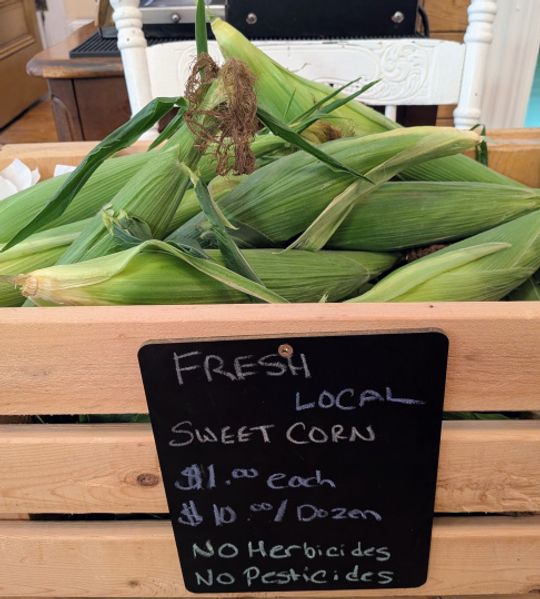 FRESH
LOCAL
SWEET CORN
$1.00 each
$10.00/Dozen
NO Herbicides
NO Pesticides